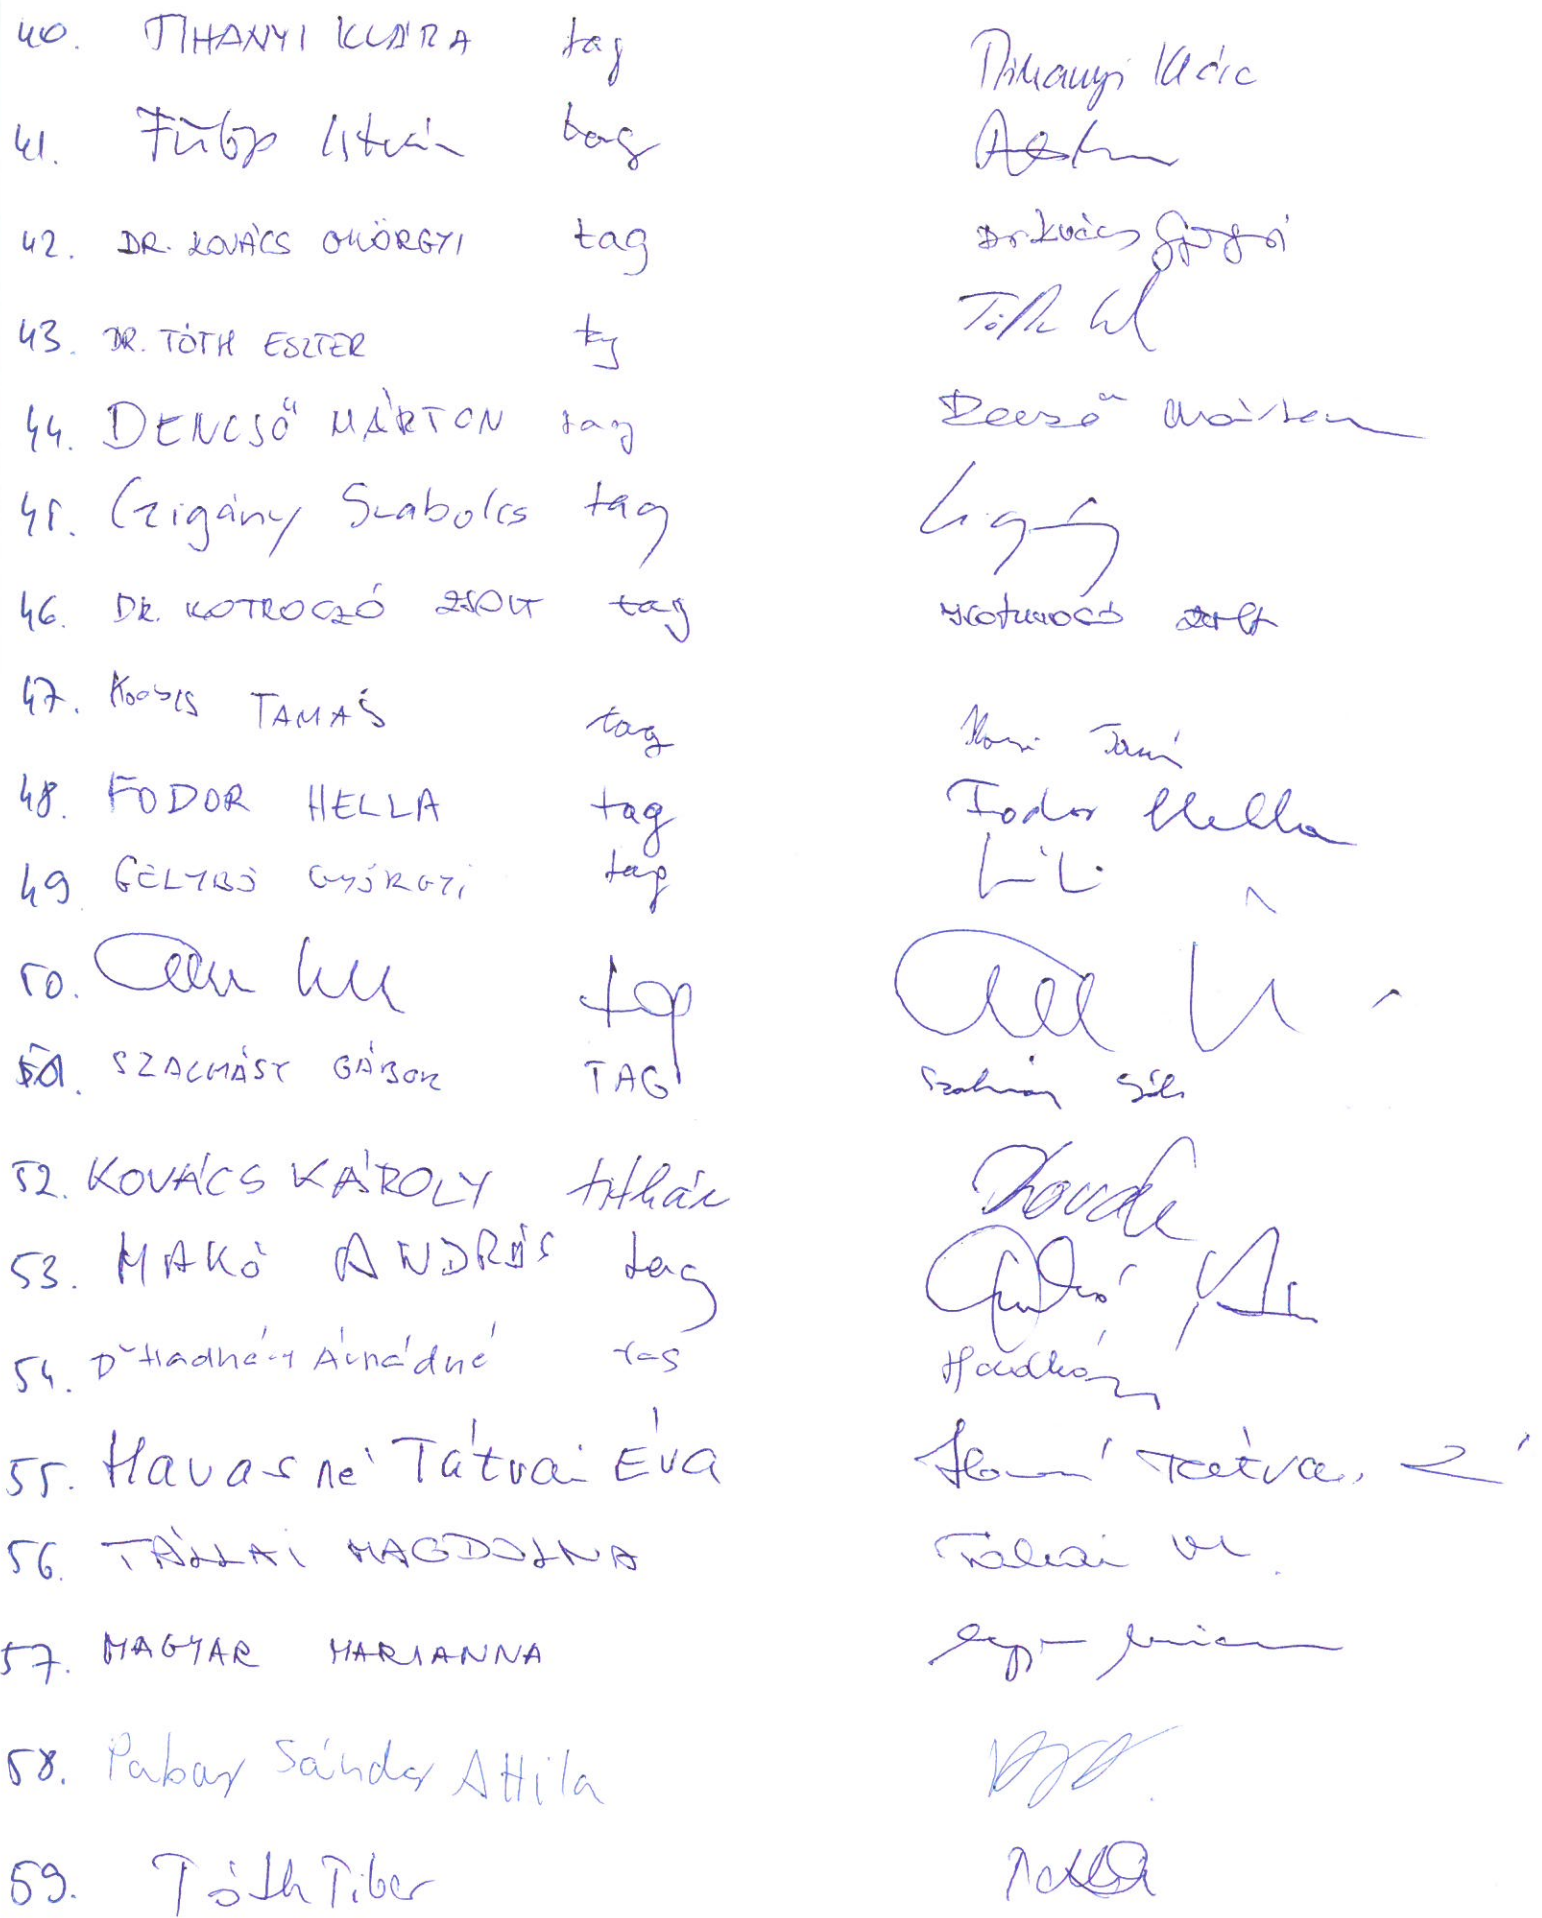 40. TIHANYI KLÁRA tag Tihanyi Klára
41. Fülöp István tag
42. DR. KOVÁCS GYÖRGYI tag Dr Kovács Györgyi
43. DR. TÓTH ESZTER tag Tóth
44. DENCSŐ MÁRTON tag Dencső Márton
45. Czigány Szabolcs tag
46. DR. KOTROCZÓ ZSOLT tag Kotroczó Zsolt
47. TAMÁS tag Tamás
48. FODOR HELLA tag Fodor Hella
49 GELYBÓ GYÖRGYI tag
50. tag
51. SZALMÁSY GÁBOR TAG
52. KOVÁCS KÁROLY titkár Kovács
53. MAKÓ ANDRÁS tag András
54. Dr Hadházy Árpádné tag Hadházy
55. Havasné Tátrai Éva Tátrai
56. TÁLLAI MAGDOLNA Tállai M.
57. MAGYAR MARIANNA
58. Pabar Sándor Attila
59. Tóth Tibor